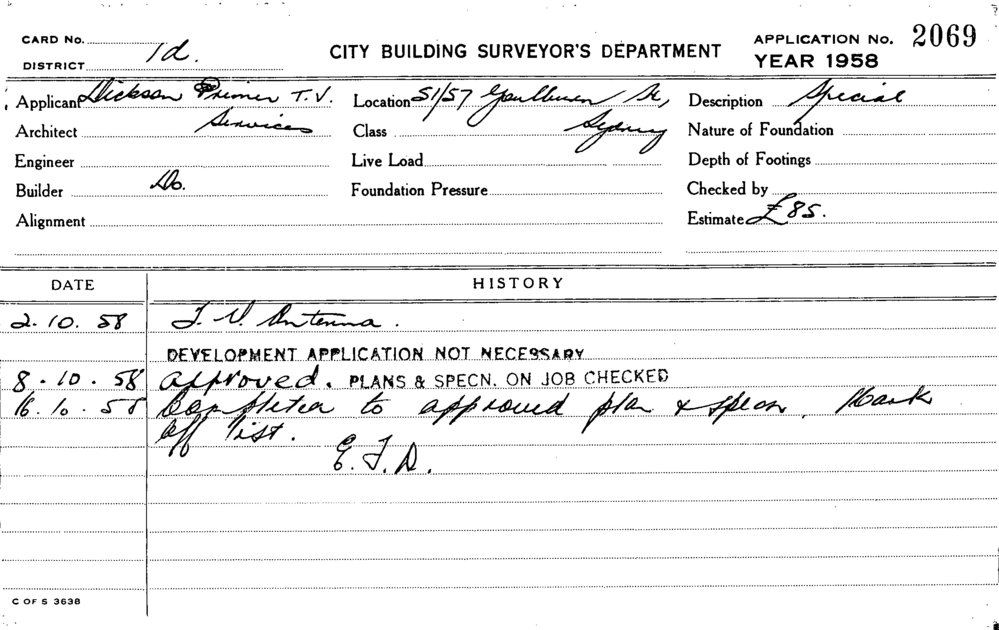 CARD No.
DISTRICT 1d.
CITY BUILDING SURVEYOR'S DEPARTMENT
APPLICATION No. 2069
YEAR 1958
Applicant Dickson Primer T.V. Services
Location 51/57 Goulburn St, Sydney
Description Special
Architect
Class
Nature of Foundation
Engineer
Live Load
Depth of Footings
Builder Do.
Foundation Pressure
Checked by
Alignment
Estimate £85.
DATE HISTORY
2.10.58 T.V. Antenna.
DEVELOPMENT APPLICATION NOT NECESSARY
8.10.58 Approved. PLANS & SPECN. ON JOB CHECKED
16.10.58 Completed to approved plan & specn. Mark
off list.
E.F.D.
C OF S 3638